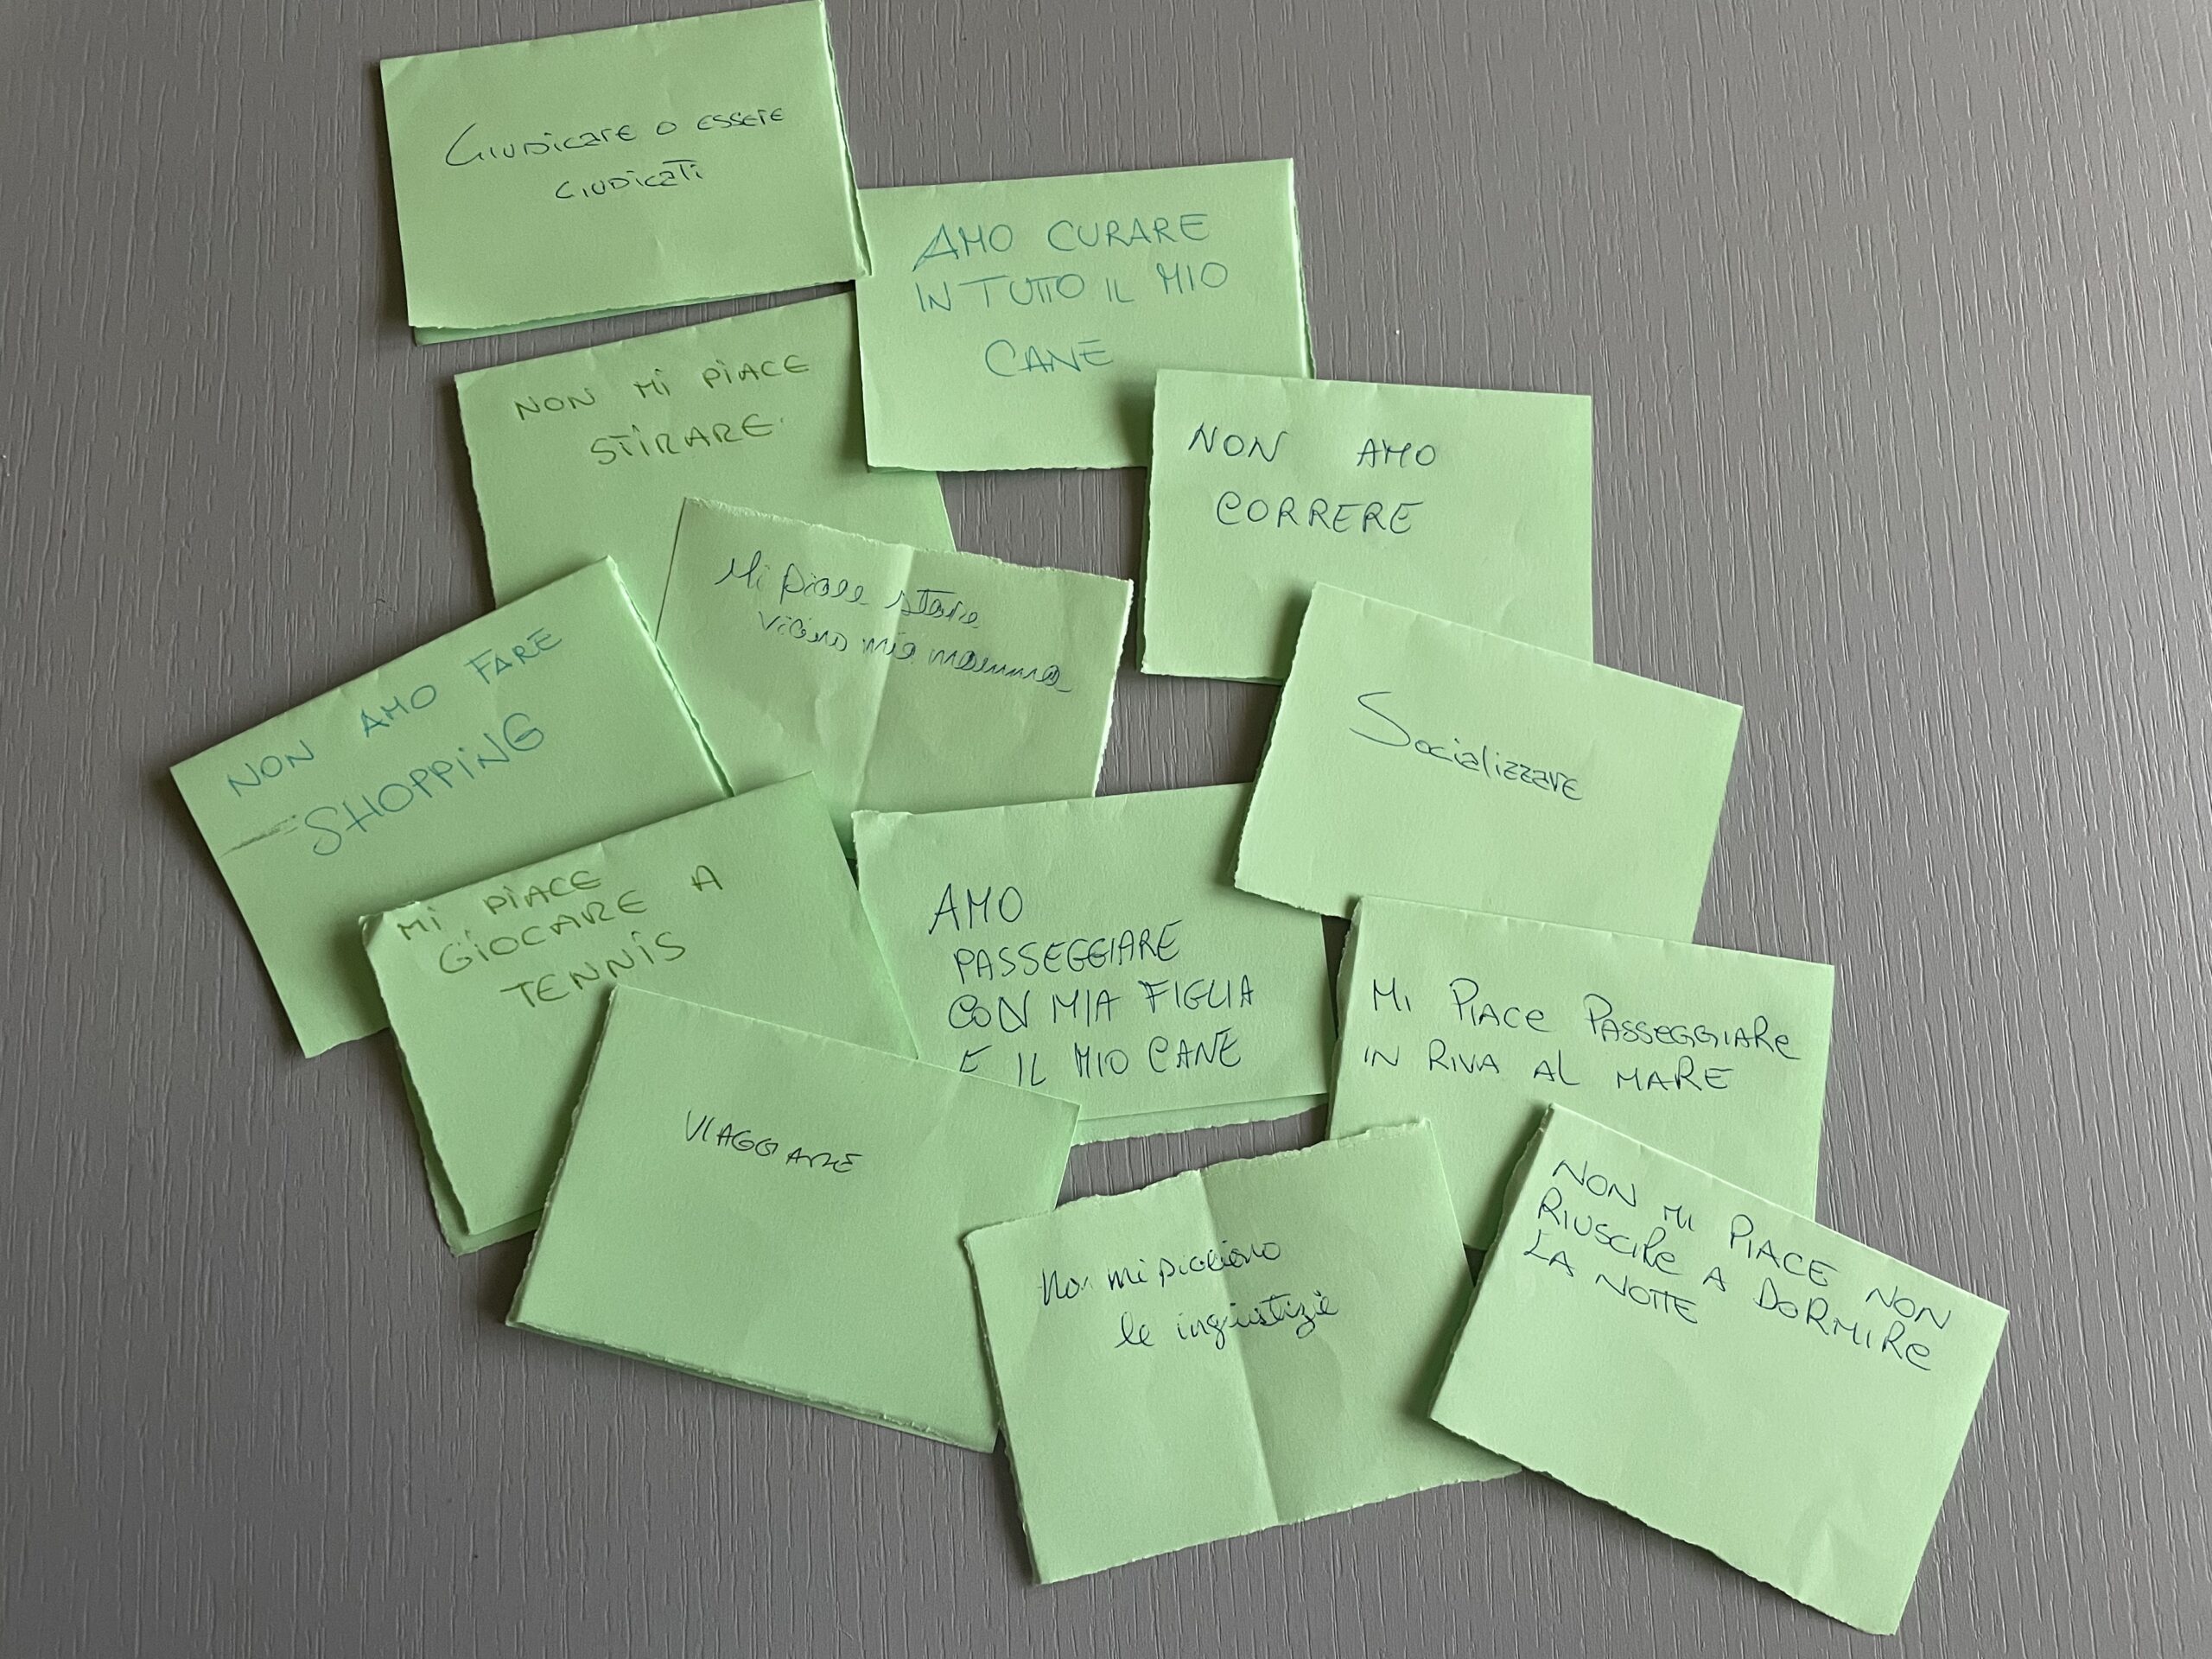 Giudicare o essere
giudicati
AMO CURARE
IN TUTTO IL MIO
CANE
NON MI PIACE
STIRARE.
NON AMO
CORRERE
Mi piace stare
vicino mia mamma
NON AMO FARE
SHOPPING
Socializzare
MI PIACE
GIOCARE A
TENNIS
AMO
PASSEGGIARE
CON MIA FIGLIA
E IL MIO CANE
MI PIACE PASSEGGIARE
IN RIVA AL MARE
VIAGGIARE
NON MI PIACE NON
RIUSCIRE A DORMIRE
LA NOTTE
Non mi piacciono
le ingiustizie